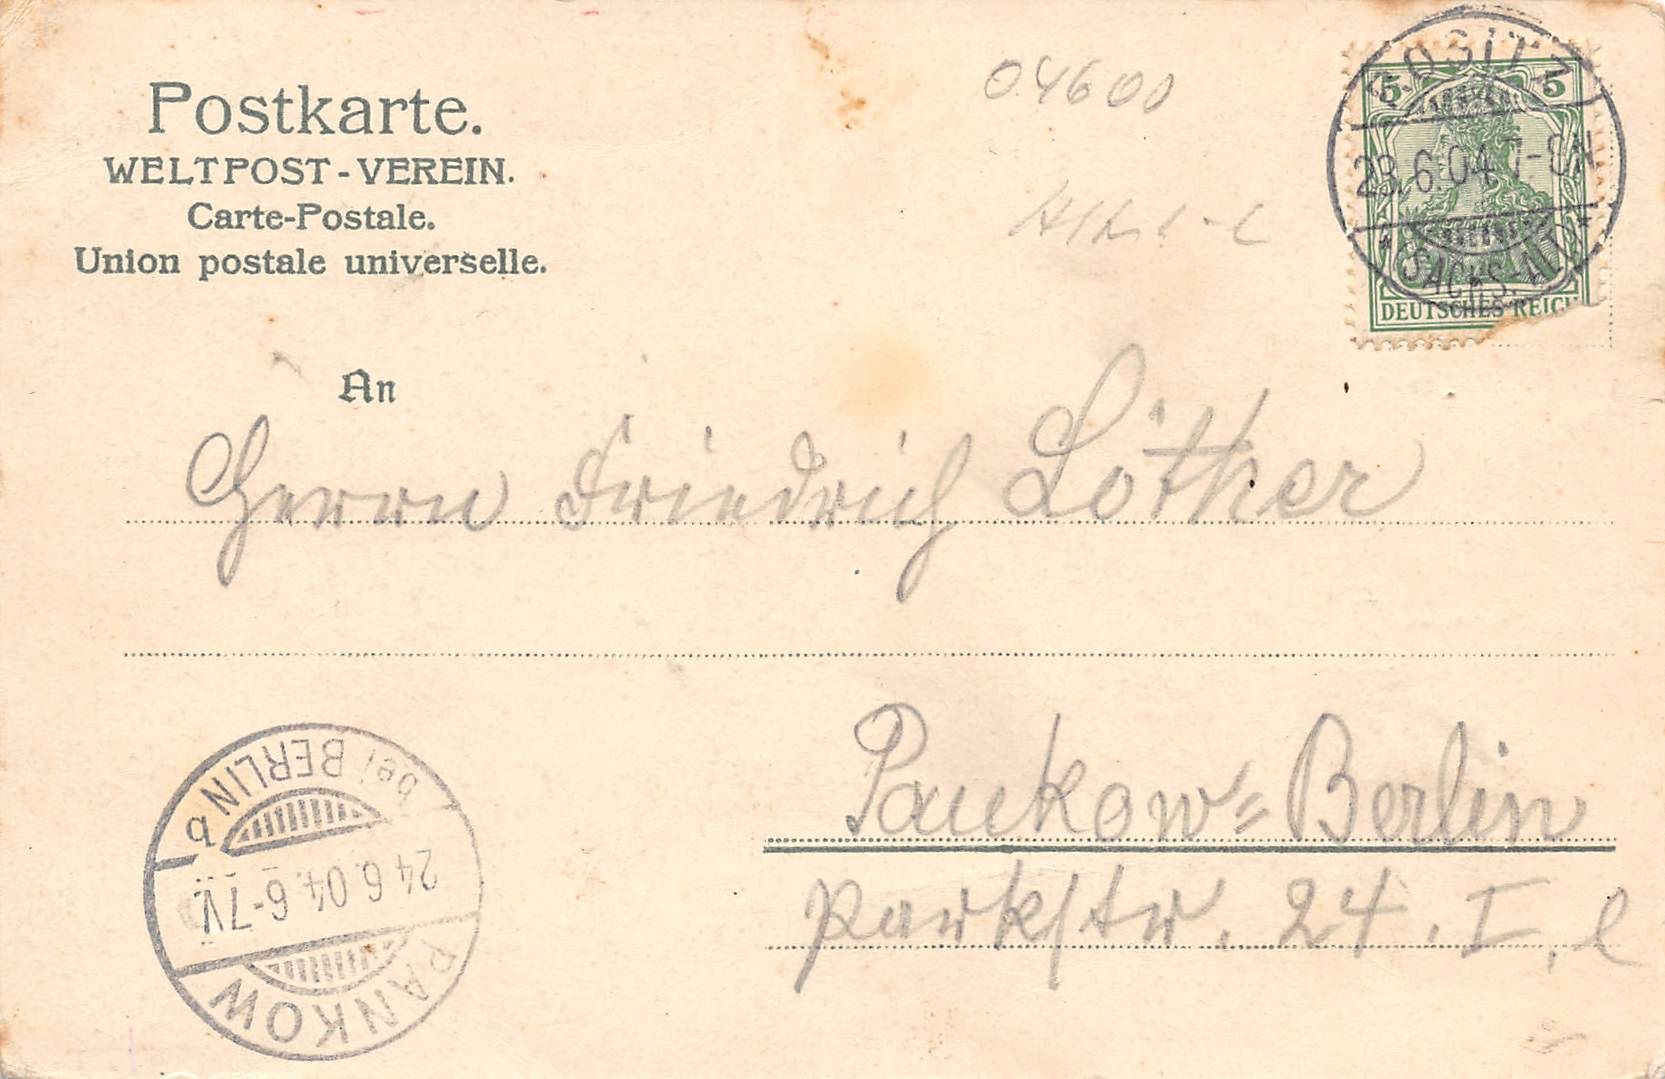 Postkarte.
WELTPOST-VEREIN.
Carte-Postale.
Union postale universelle.
04600
5 5
DEUTSCHES REICH
ROSITZ
23.6.04. 7-8N
* SACHS.-ALT. *
An
Herrn Friedrich Löther
Pankow=Berlin
Parkstr. 24. I, l
PANKOW
24.6.04.6-7V.
bei BERLIN b